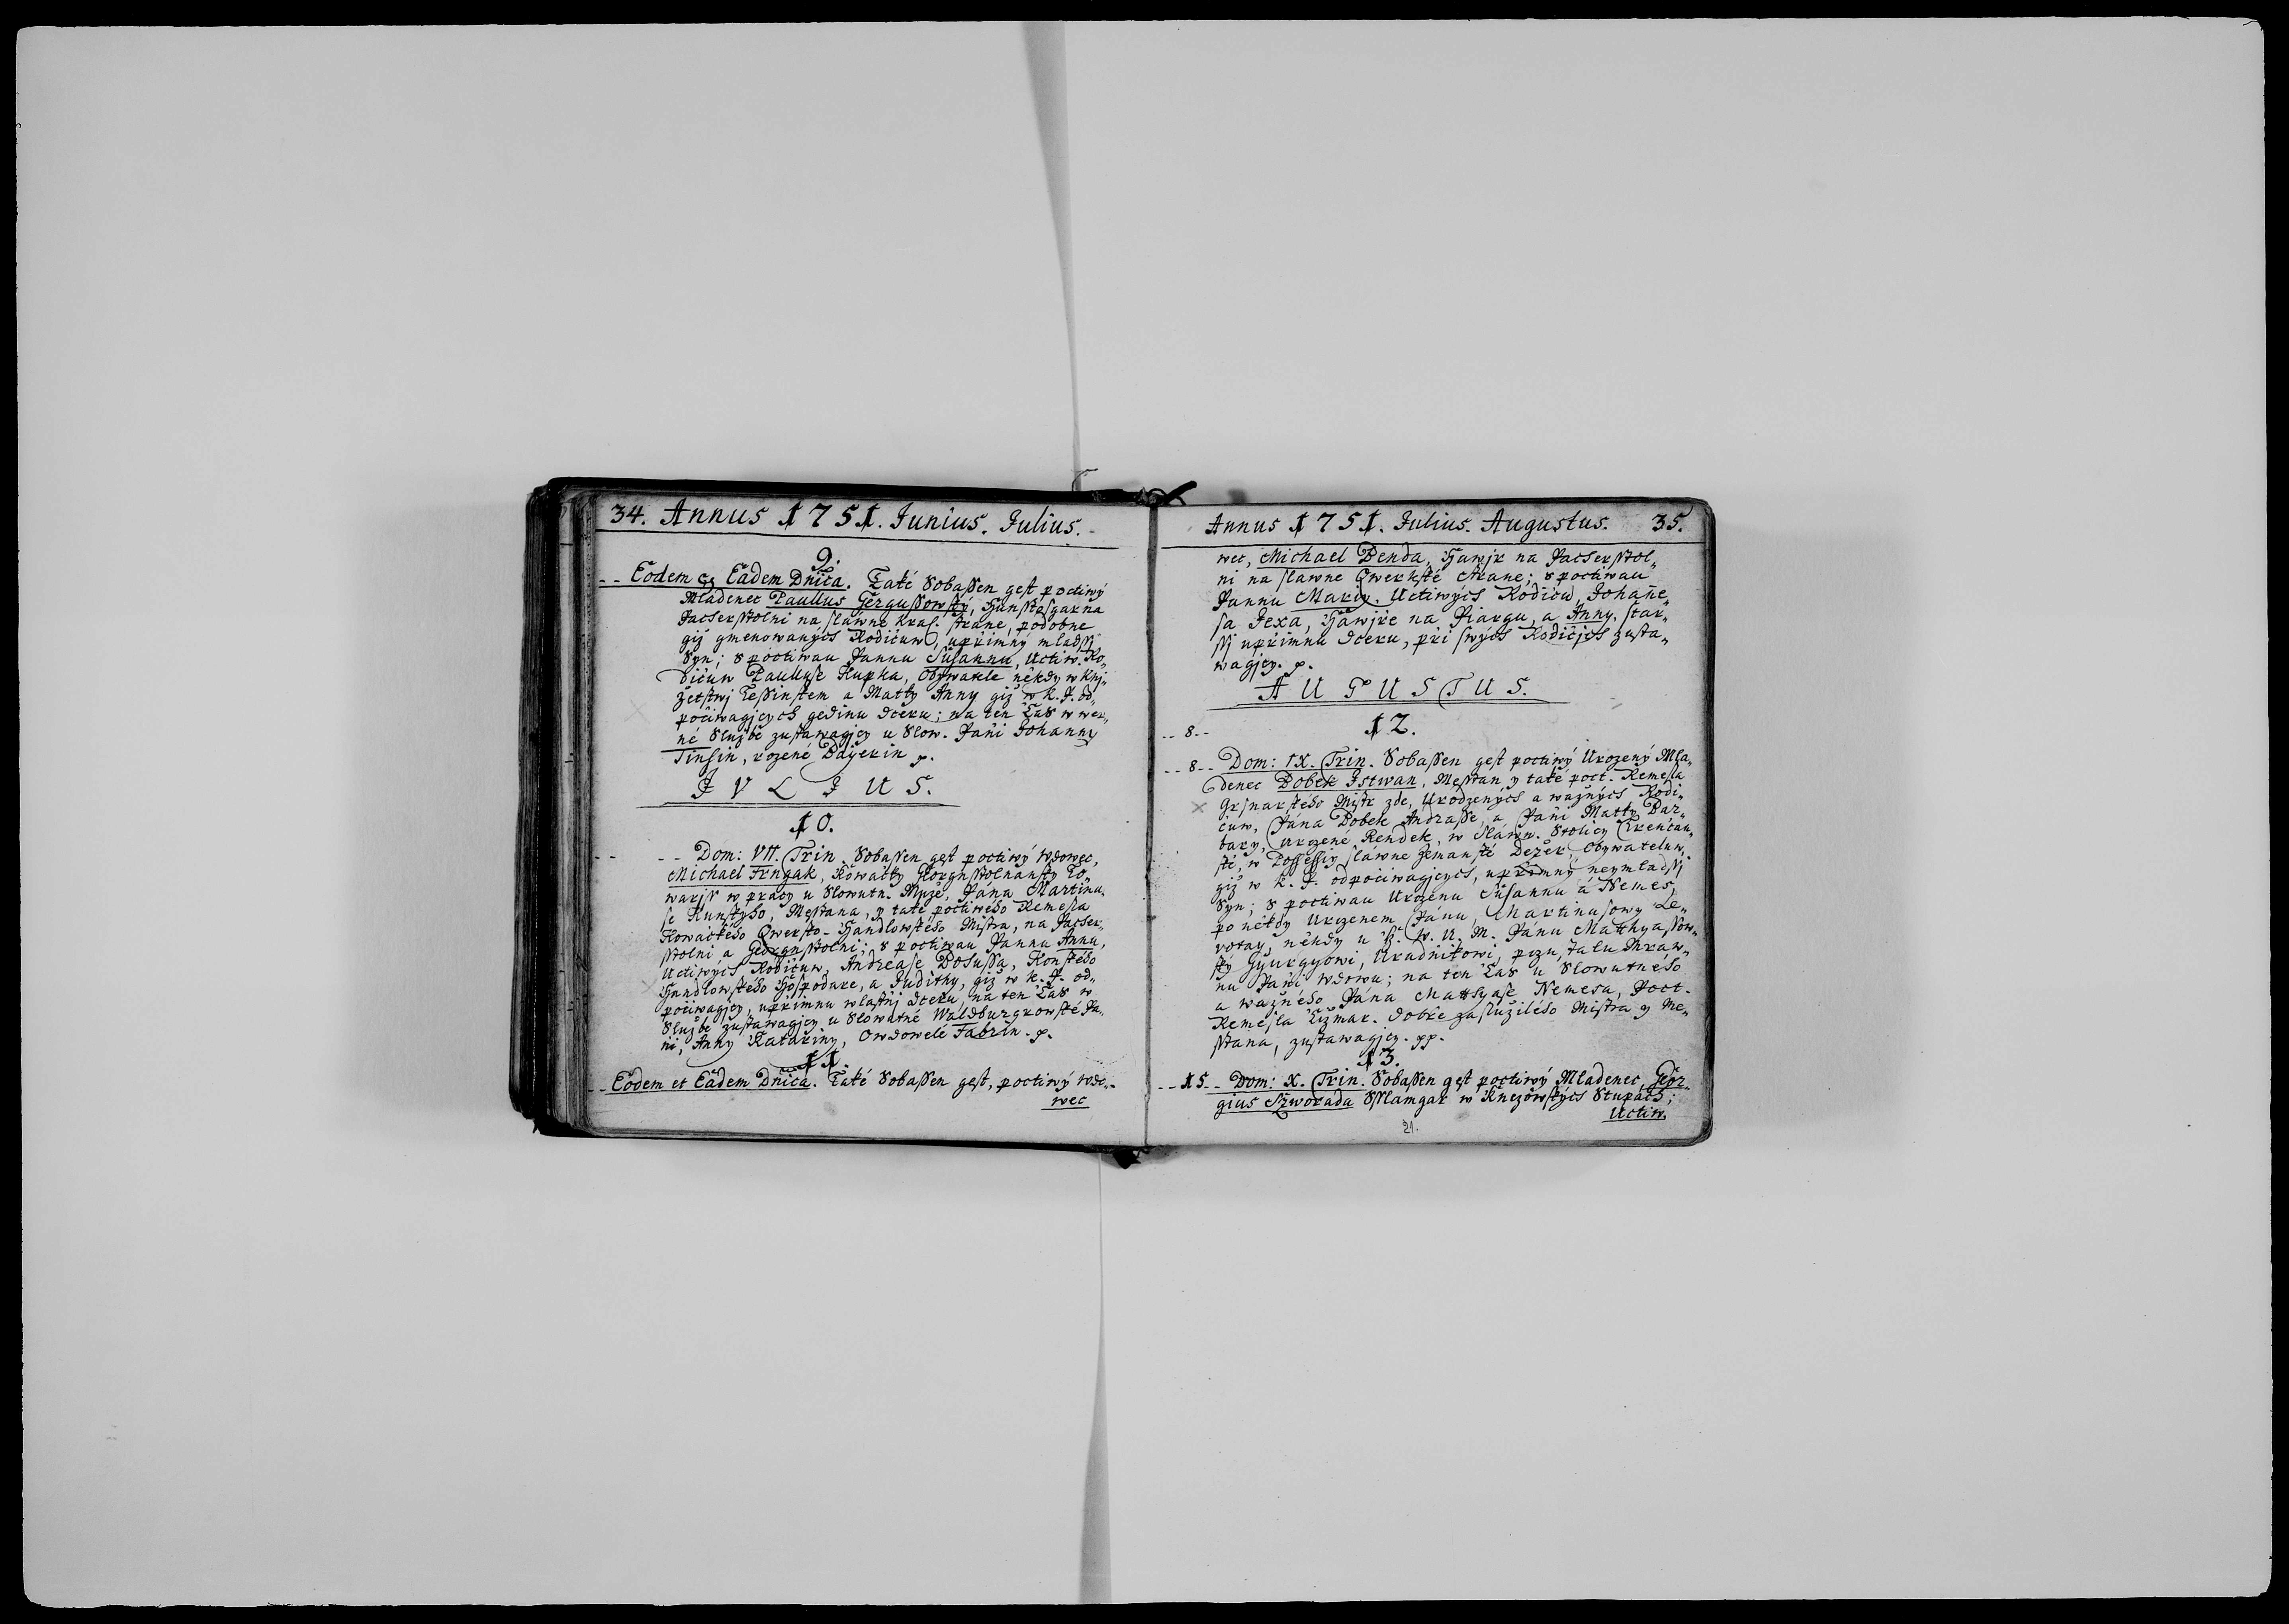 34. Annus 1751. Junius. Julius.
9.
Eodem & Eâdem Dnicâ. Také Sobassen gest poctiwý
Mladenec Paullus Gergussowský, Hunsstosgar na
Pacherstolni na slawne Kral. strane, podobne
giž gmenowaných Rodičuw, uprimný mladssj
Syn; s poctiwau Pannu Susannu, Uctiw. Ro„
dičuw Paulluse Kupka, Obywatele někdy w Knj„
žetstwj Tessinskem a Matky Anny giž w K. P. od„
počiwagjcych gedinu dceru; na ten čas w wer„
né Službě zustawagjcy u Slow. Pani Johanny
Tinsin, rozené Bayerin p.
J V L J U S.
10.
Dom: VII. Trin. Sobassen gest poctiwý Wdowec,
Michael Frngak, Kowačky Horgnstolnansky To„
warjss w pracy u Slowutn. Muže, Pána Martinu„
se Kunskyho, Messtana, y také poctiweho Remesla
Kowačkého Qwerko-Handlowského Mistra, na Pacher„
stolni a Georgnstolni; s poctiwau Pannu Annu,
Uctiwých Rodičuw, Andrease Bohussa, Konského
Handlowského Hospodare, a Judithy, giž w K. P. od„
počiwagjcy, uprimnu wlastnj dceru, na ten čas w
Službě zustawagjcy u Slowutné Waldburgrowské Pa„
ni, Anny Katariny, Owdowelé Fabrin. p.
11.
Eodem et Eâdem Dnicâ. Také Sobassen gest, poctiwý wdo„
wec
Annus 1751. Julius. Augustus. 35.
wec, Michael Benda, Hawjr na Pacherstol„
ni na slawne Qwerkské strane; s poctiwau
Pannu Mariy. Uctiwých Rodičů, Johañe„
sa Jexa, Hawjře na Piargu, a Anny, star„
ssj uprimnu dceru, pri swých Rodičjch zusta„
wagjcy. p.
A U G U S T U S.
8
12.
8 Dom: IX. Trin. Sobassen gest poctiwý Urozený Mla„
denec Dobek Istwan, Messtan y také poct. Remesla
Grjnarského Mistr zde, Urodzených a wažných Rodi„
čuw, Pána Dobek Andrasse, a Pani Matky Bar„
bary, Urozené Rendek, w Slawn. Stolicy Trenčan„
ské, w Possessiy slawne Zemanské Dezér Obywateluw,
giž w K. P. odpočiwagjcych, uprimný neymladssj
Syn; s poctiwau Urozenu Susannu á Nemes,
po někdy Urozenem Pánu, Martinusowy Le„
votay, někdy u B. W. U. M. Panu Matthyassow„
ský Gyurgyowi, Uradnikowi, pozustalu Mraw„
nu Pani Wdowu; na ten čas u Slowutneho
a wažného Pána Matthyase Nemesa, Poct.
Remesla Čižmar. dobře zaslužilého Mistra y Me„
sstana, zustawagjcy. pp.
13.
15. Dom: X. Trin. Sobassen gest poctiwý Mladenec, Geor„
gius Szworada Sslamgar w Knezowských Stupách;
Uctiw.
21.